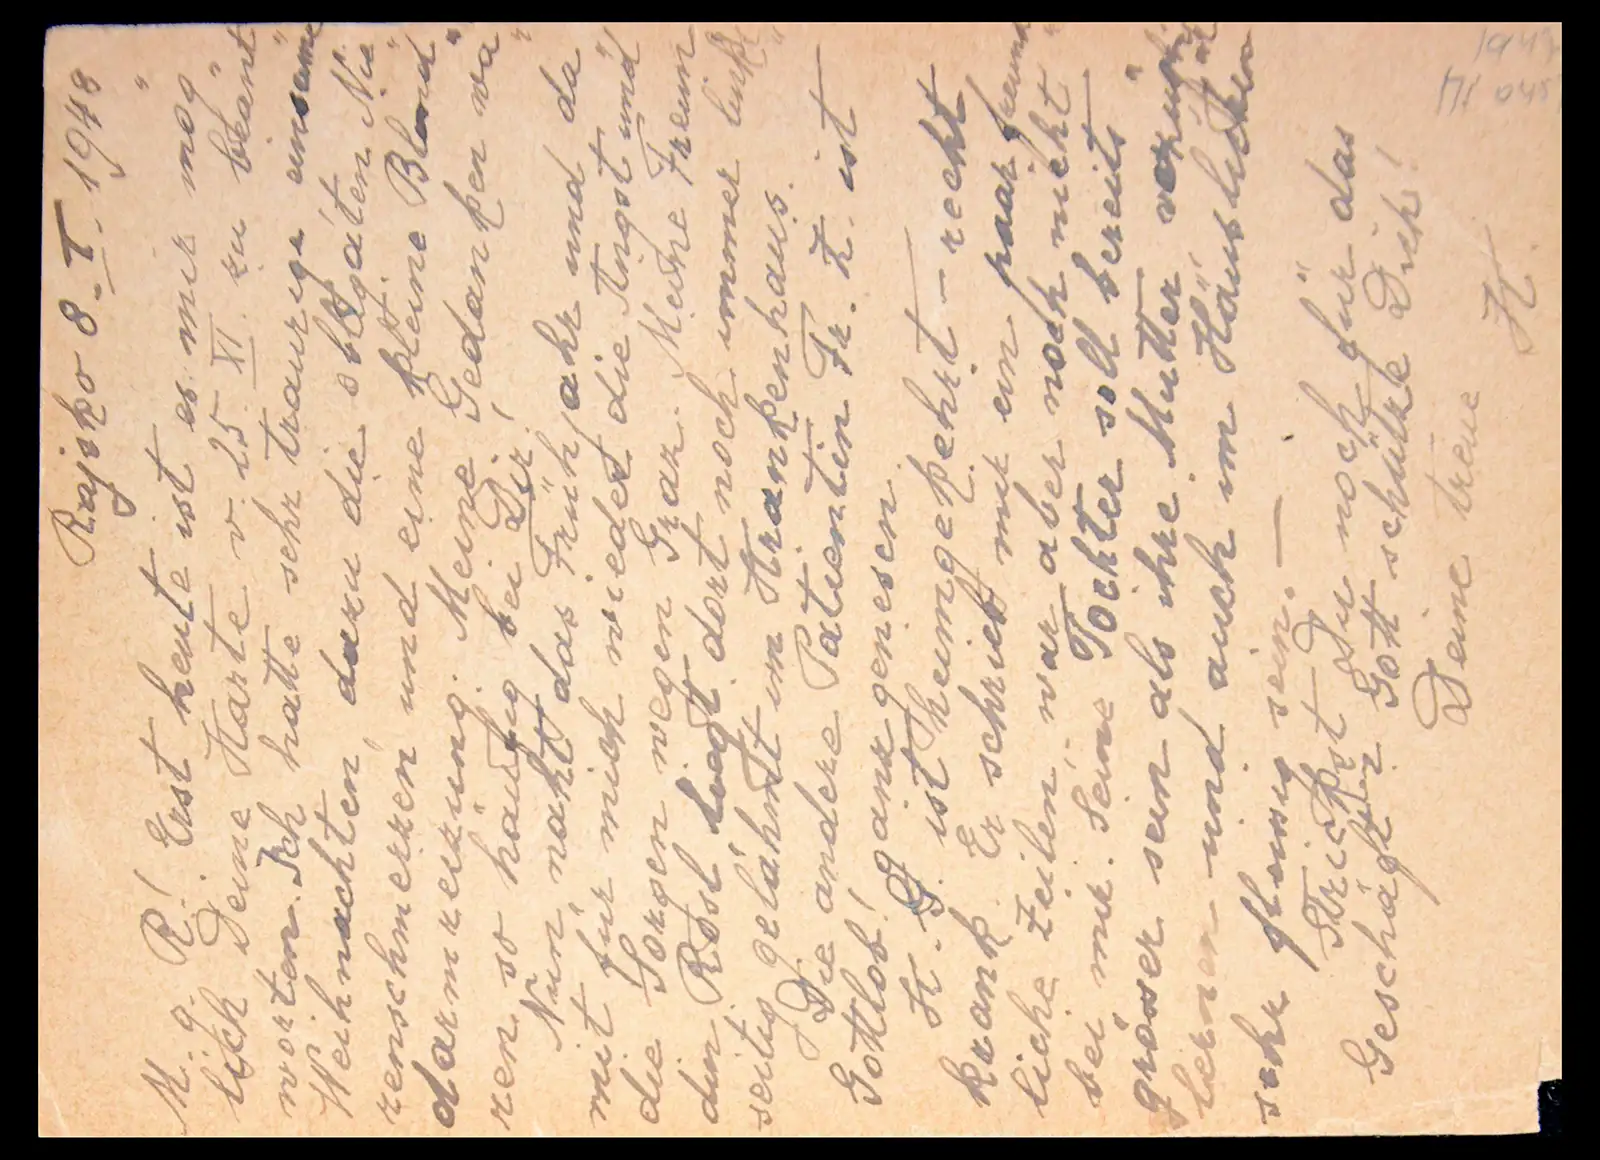 Rajsko 8. I. 1948
M. g. R! Erst heute ist es mir mög"
lich Deine Karte v. 25 XI. zu beant"
worten. Ich hatte sehr traurige einsame
Weihnachten, dazu die obligáten Nie"
renschmerzen und eine kleine Blind"
darmreizung. Meine Gedanken wa"
ren so häufig bei Dir!
Nun, naht das Frühjahr und da"
mit für mich wieder die Angst und
die Sorgen wegen Graz. Meine Freun"
din Rosl liegt dort noch immer links"
seitig gelähmt im Krankenhaus.
Die andere Patientin Fr. Z. ist
Gottlob! ganz genesen.
K. G. ist heimgekehrt – recht
krank. Er schrieb mir ein paar freund"
liche Zeilen, war aber noch nicht
bei mir. Seine Tochter soll bereits
grösser sein als ihre Mutter
lernen und auch im Häuslichen
sehr fleissig sein. —
Strickst Du noch für das
Geschäft? Gott schütze Dich!
Deine treue
K.
1947
III 045